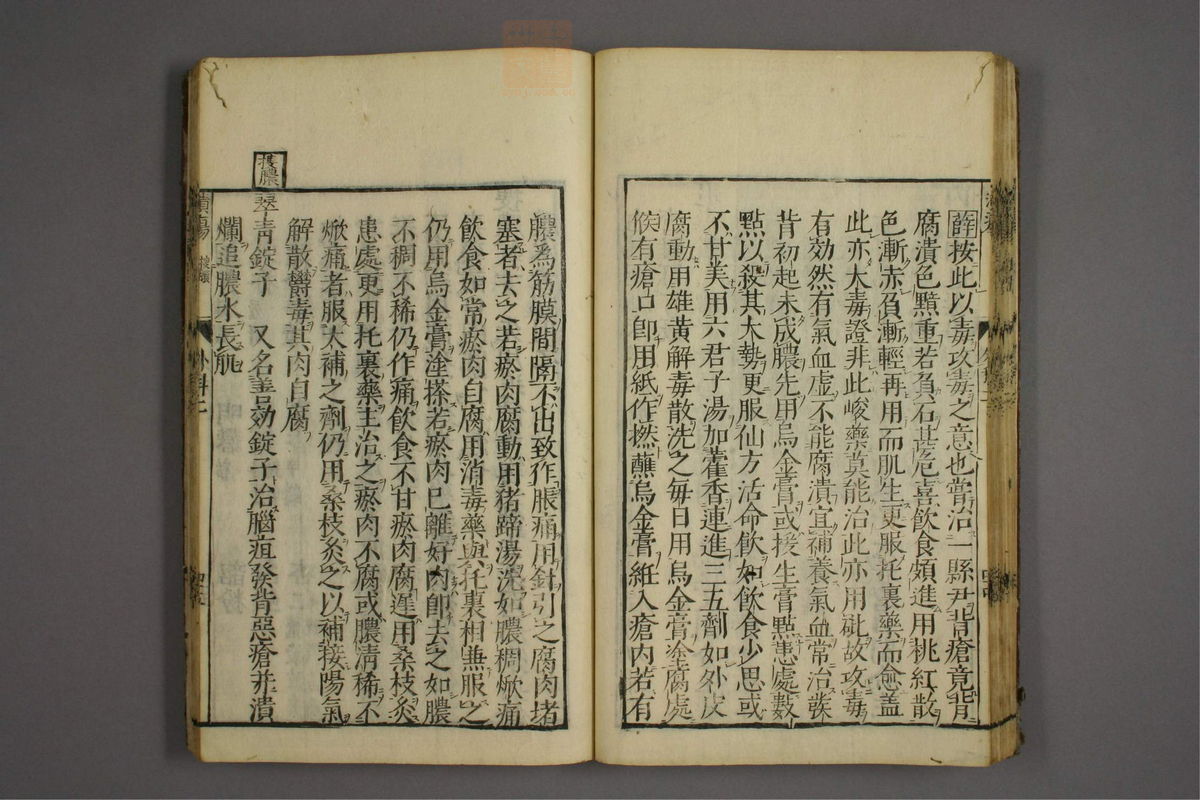 薛按此以毒攻毒之意也嘗治一縣尹背瘡竟背
腐潰色黯重若負石甚危喜飲食頗進用桃紅散
色漸赤負漸輕再用而肌生更服托裏藥而愈蓋
此亦大毒證非此峻藥莫能治此亦用砒故攻毒
有効然有氣血虛不能腐潰宜補養氣血常治發
背初起未成膿先用烏金膏或援生膏點患處數
點以殺其大勢更服仙方活命飲如飲食少思或
不甘美用六君子湯加藿香連進三五劑如外皮
腐動用雄黃解毒散洗之每日用烏金膏塗腐處
候有瘡口卽用紙作撚蘸烏金膏紙入瘡內若有
膿爲筋膜間隔不出致作脹痛用針引之腐肉堵
塞者去之若瘀肉腐動用猪蹄湯洗如膿稠焮痛
飲食如常瘀肉自腐用消毒藥與托裏相兼服之
仍用烏金膏塗搽若瘀肉已離好肉卽去之如膿
不稠不稀仍作痛飲食不甘瘀肉腐遲用桑枝灸
患處更用托裏藥主治之瘀肉不腐或膿清稀不
焮痛者服大補之劑仍用桑枝灸之以補接陽氣
解散鬱毒其肉自腐
翠青錠子 又名善効錠子治腦疽發背惡瘡并潰
爛追膿水長肌
潰瘍
外科二
四五